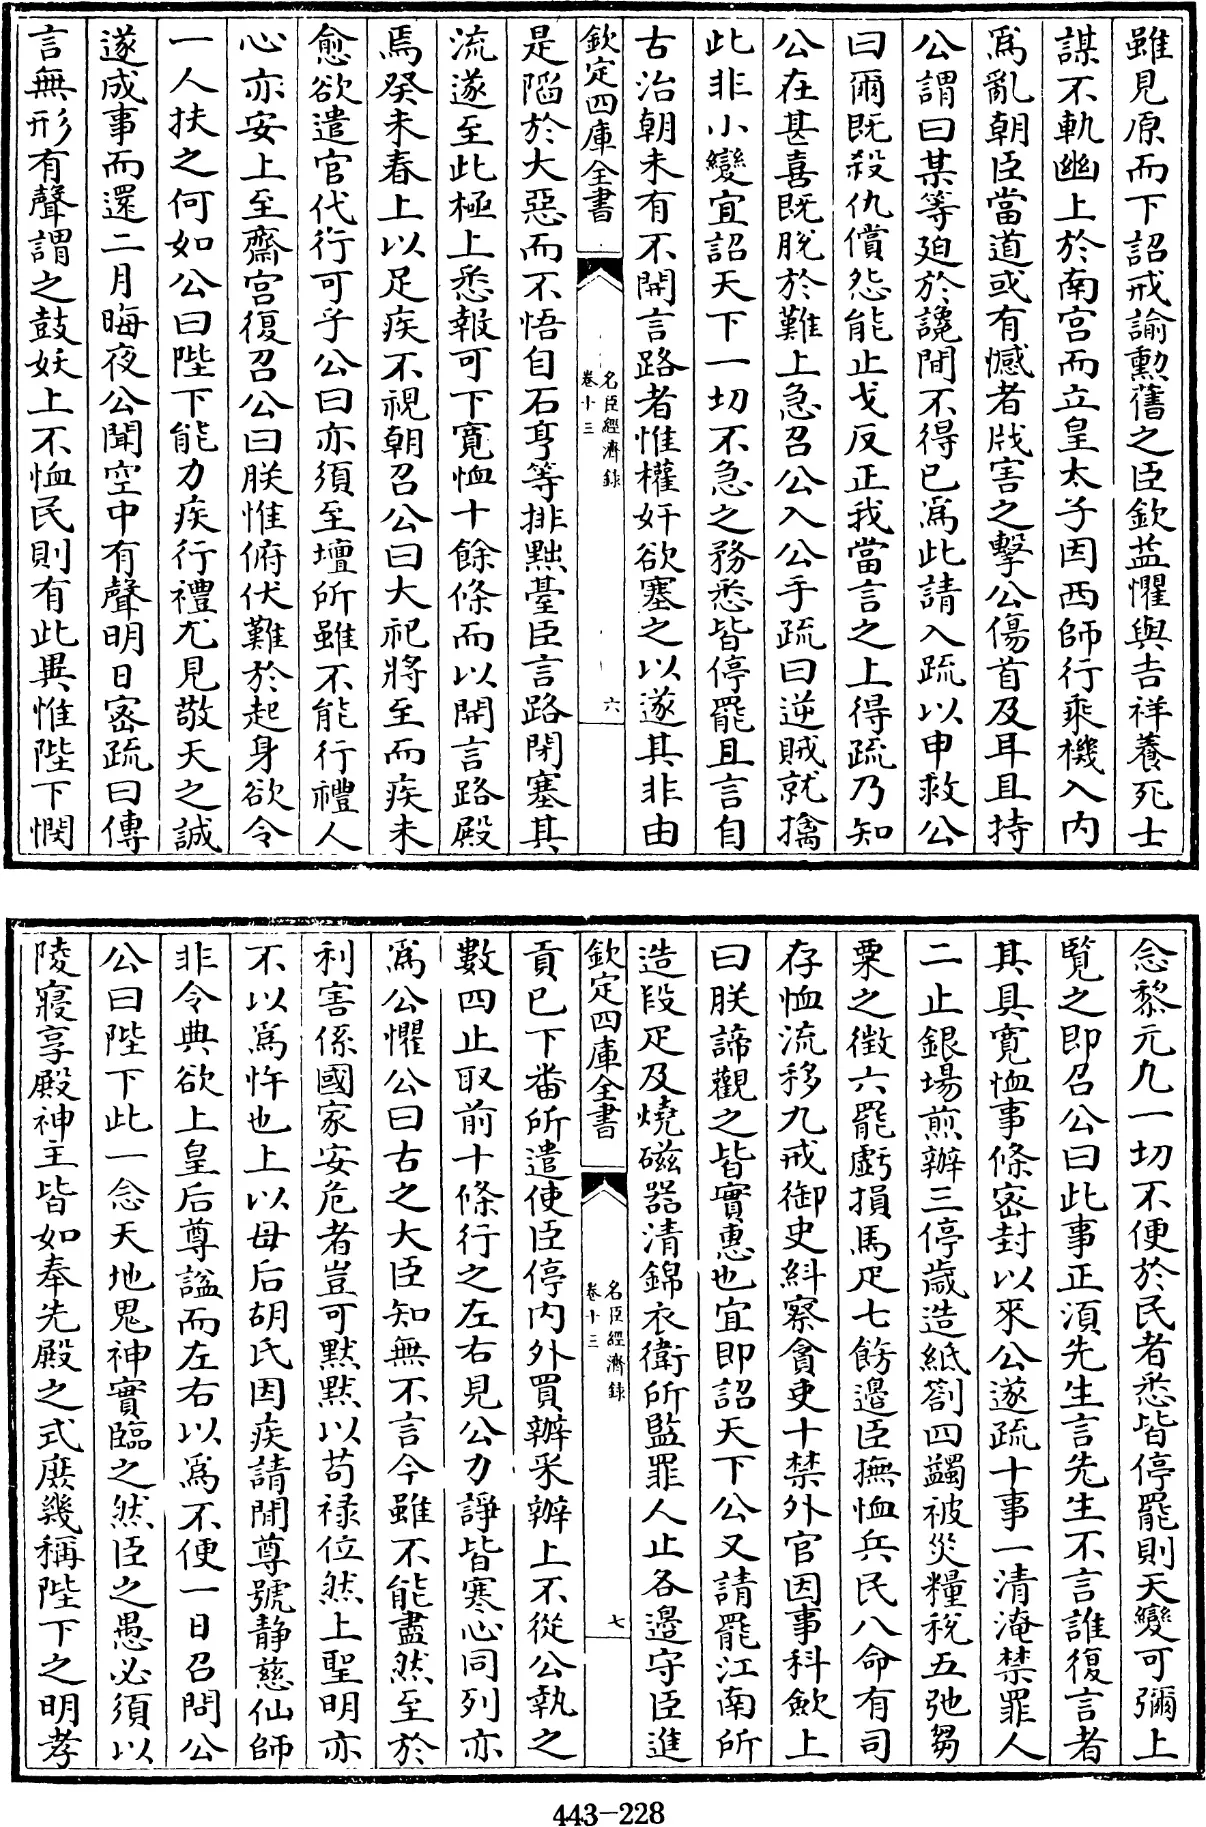 雖見原而下詔戒諭勲舊之臣欽益懼與吉祥養死士
謀不軌幽上於南宮而立皇太子因西師行乘機入内
為亂朝臣當道或有憾者戕害之擊公傷首及耳且持
公謂曰某等廹於讒間不得已為此請入疏以申救公
曰爾既殺仇償怨能止戈反正我當言之上得疏乃知
公在甚喜既脱於難上急召公入公手疏曰逆賊就擒
此非小變宜詔天下一切不急之務悉皆停罷且言自
古治朝未有不開言路者惟權奸欲塞之以遂其非由
欽定四庫全書
名臣經濟録
卷十三
六
是陷於大惡而不悟自石亨等排黜臺臣言路閉塞其
流遂至此極上悉報可下寛恤十餘條而以開言路殿
焉癸未春上以足疾不視朝召公曰大祀將至而疾未
愈欲遣官代行可乎公曰亦須至壇所雖不能行禮人
心亦安上至齋宮復召公曰朕惟俯伏難於起身欲令
一人扶之何如公曰陛下能力疾行禮尤見敬天之誠
遂成事而還二月晦夜公聞空中有聲明日密疏曰傳
言無形有聲謂之鼓妖上不恤民則有此異惟陛下憫
念黎元凡一切不便於民者悉皆停罷則天變可彌上
覽之即召公曰此事正湏先生言先生不言誰復言者
其具寛恤事條密封以來公遂疏十事一清淹禁罪人
二止銀場煎辦三停歲造紙劄四蠲被災糧稅五弛芻
粟之徴六罷虧損馬疋七飭邊臣撫恤兵民八命有司
存恤流移九戒御史糾察貪吏十禁外官因事科歛上
曰朕諦觀之皆實惠也宜即詔天下公又請罷江南所
造段疋及燒磁器清錦衣衛所監罪人止各邊守臣進
欽定四庫全書
名臣經濟録
卷十三
七
貢已下番所遣使臣停内外買辦采辦上不從公執之
數四止取前十條行之左右見公力諍皆寒心同列亦
為公懼公曰古之大臣知無不言今雖不能盡然至於
利害係國家安危者豈可默默以苟禄位然上聖明亦
不以為忤也上以母后胡氏因疾請閒尊號静慈仙師
非令典欲上皇后尊諡而左右以為不便一日召問公
公曰陛下此一念天地鬼神實臨之然臣之愚必須以
陵寢享殿神主皆如奉先殿之式庶幾稱陛下之明孝
443-228